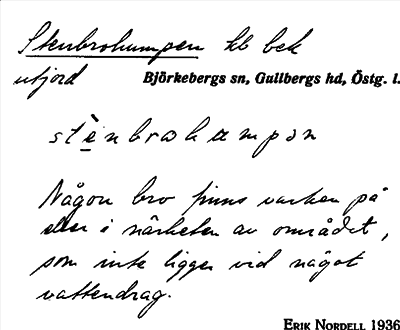 Stenbrohumpen kb bek
utjord Björkebergs sn, Gullbergs hd, Östg. l.
stènbrωhumpən
Någon bro finns varken på
eller i närheten av området,
som inte ligger vid något
vattendrag.
ERIK NORDELL 1936